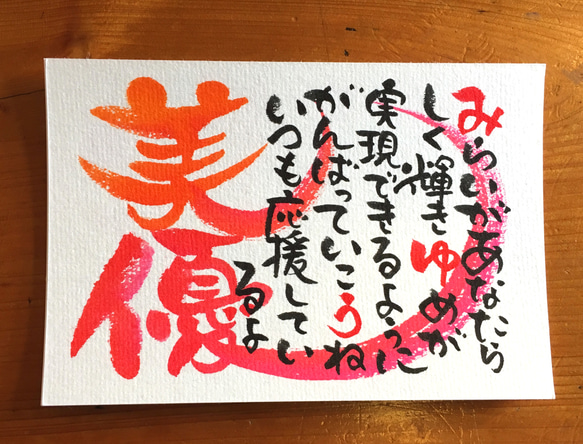 みらいがあなたら
しく輝きゆめが
実現できるように
がんばっていこうね
いつも応援してい
るよ
美優